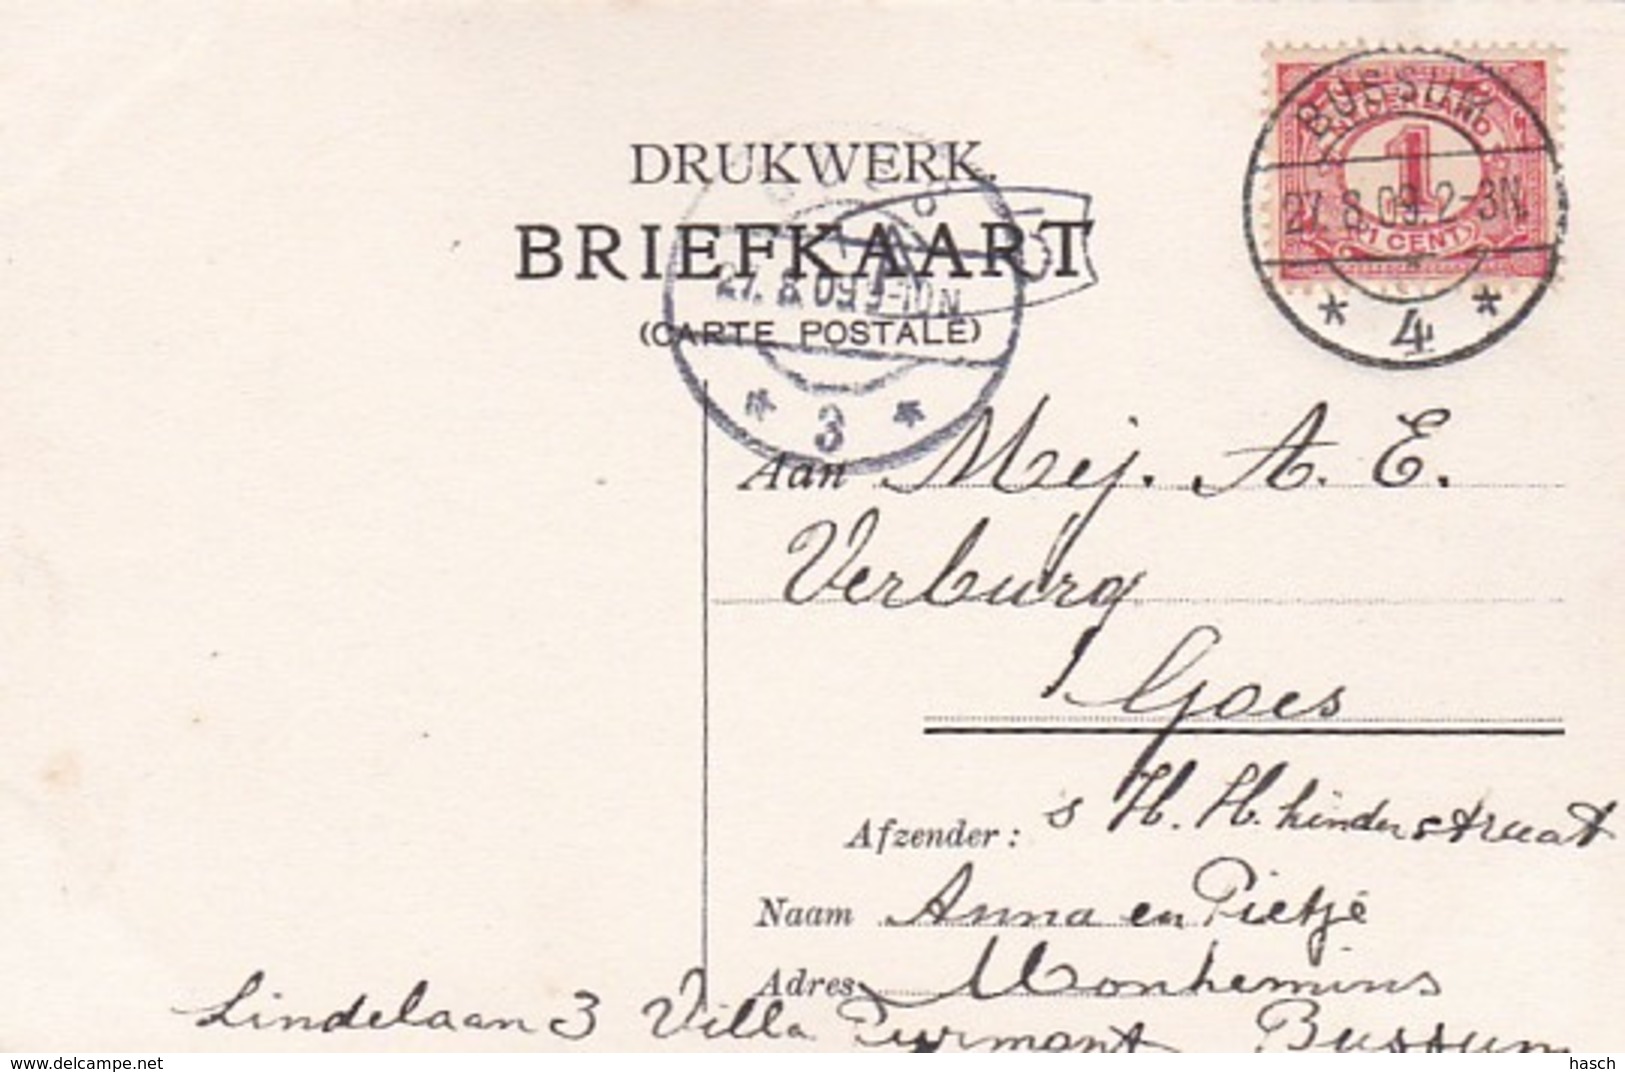 DRUKWERK.
BRIEFKAART
(CARTE POSTALE)
BUSSUM
27. 8. 09. 2-3N.
* 4 *
NEDERLAND
1
1 CENT
27. 8. 09 9-10N
* 3 *
5
Aan Mej. A. E.
Verburg
Goes
Afzender: s H. H. kinderstraat
Naam Anna en Pietje
Adres
Lindelaan 3 Villa Pyrmont Bussum
www.delcampe.net
hasch